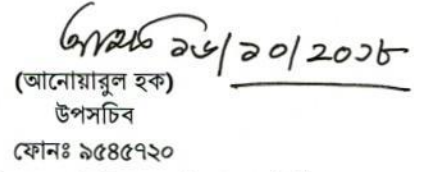 ১৬/১০/2০১৮
(আনোয়ারুল হক)
উপসচিব
ফোনঃ ৯৫৪৫৭২০